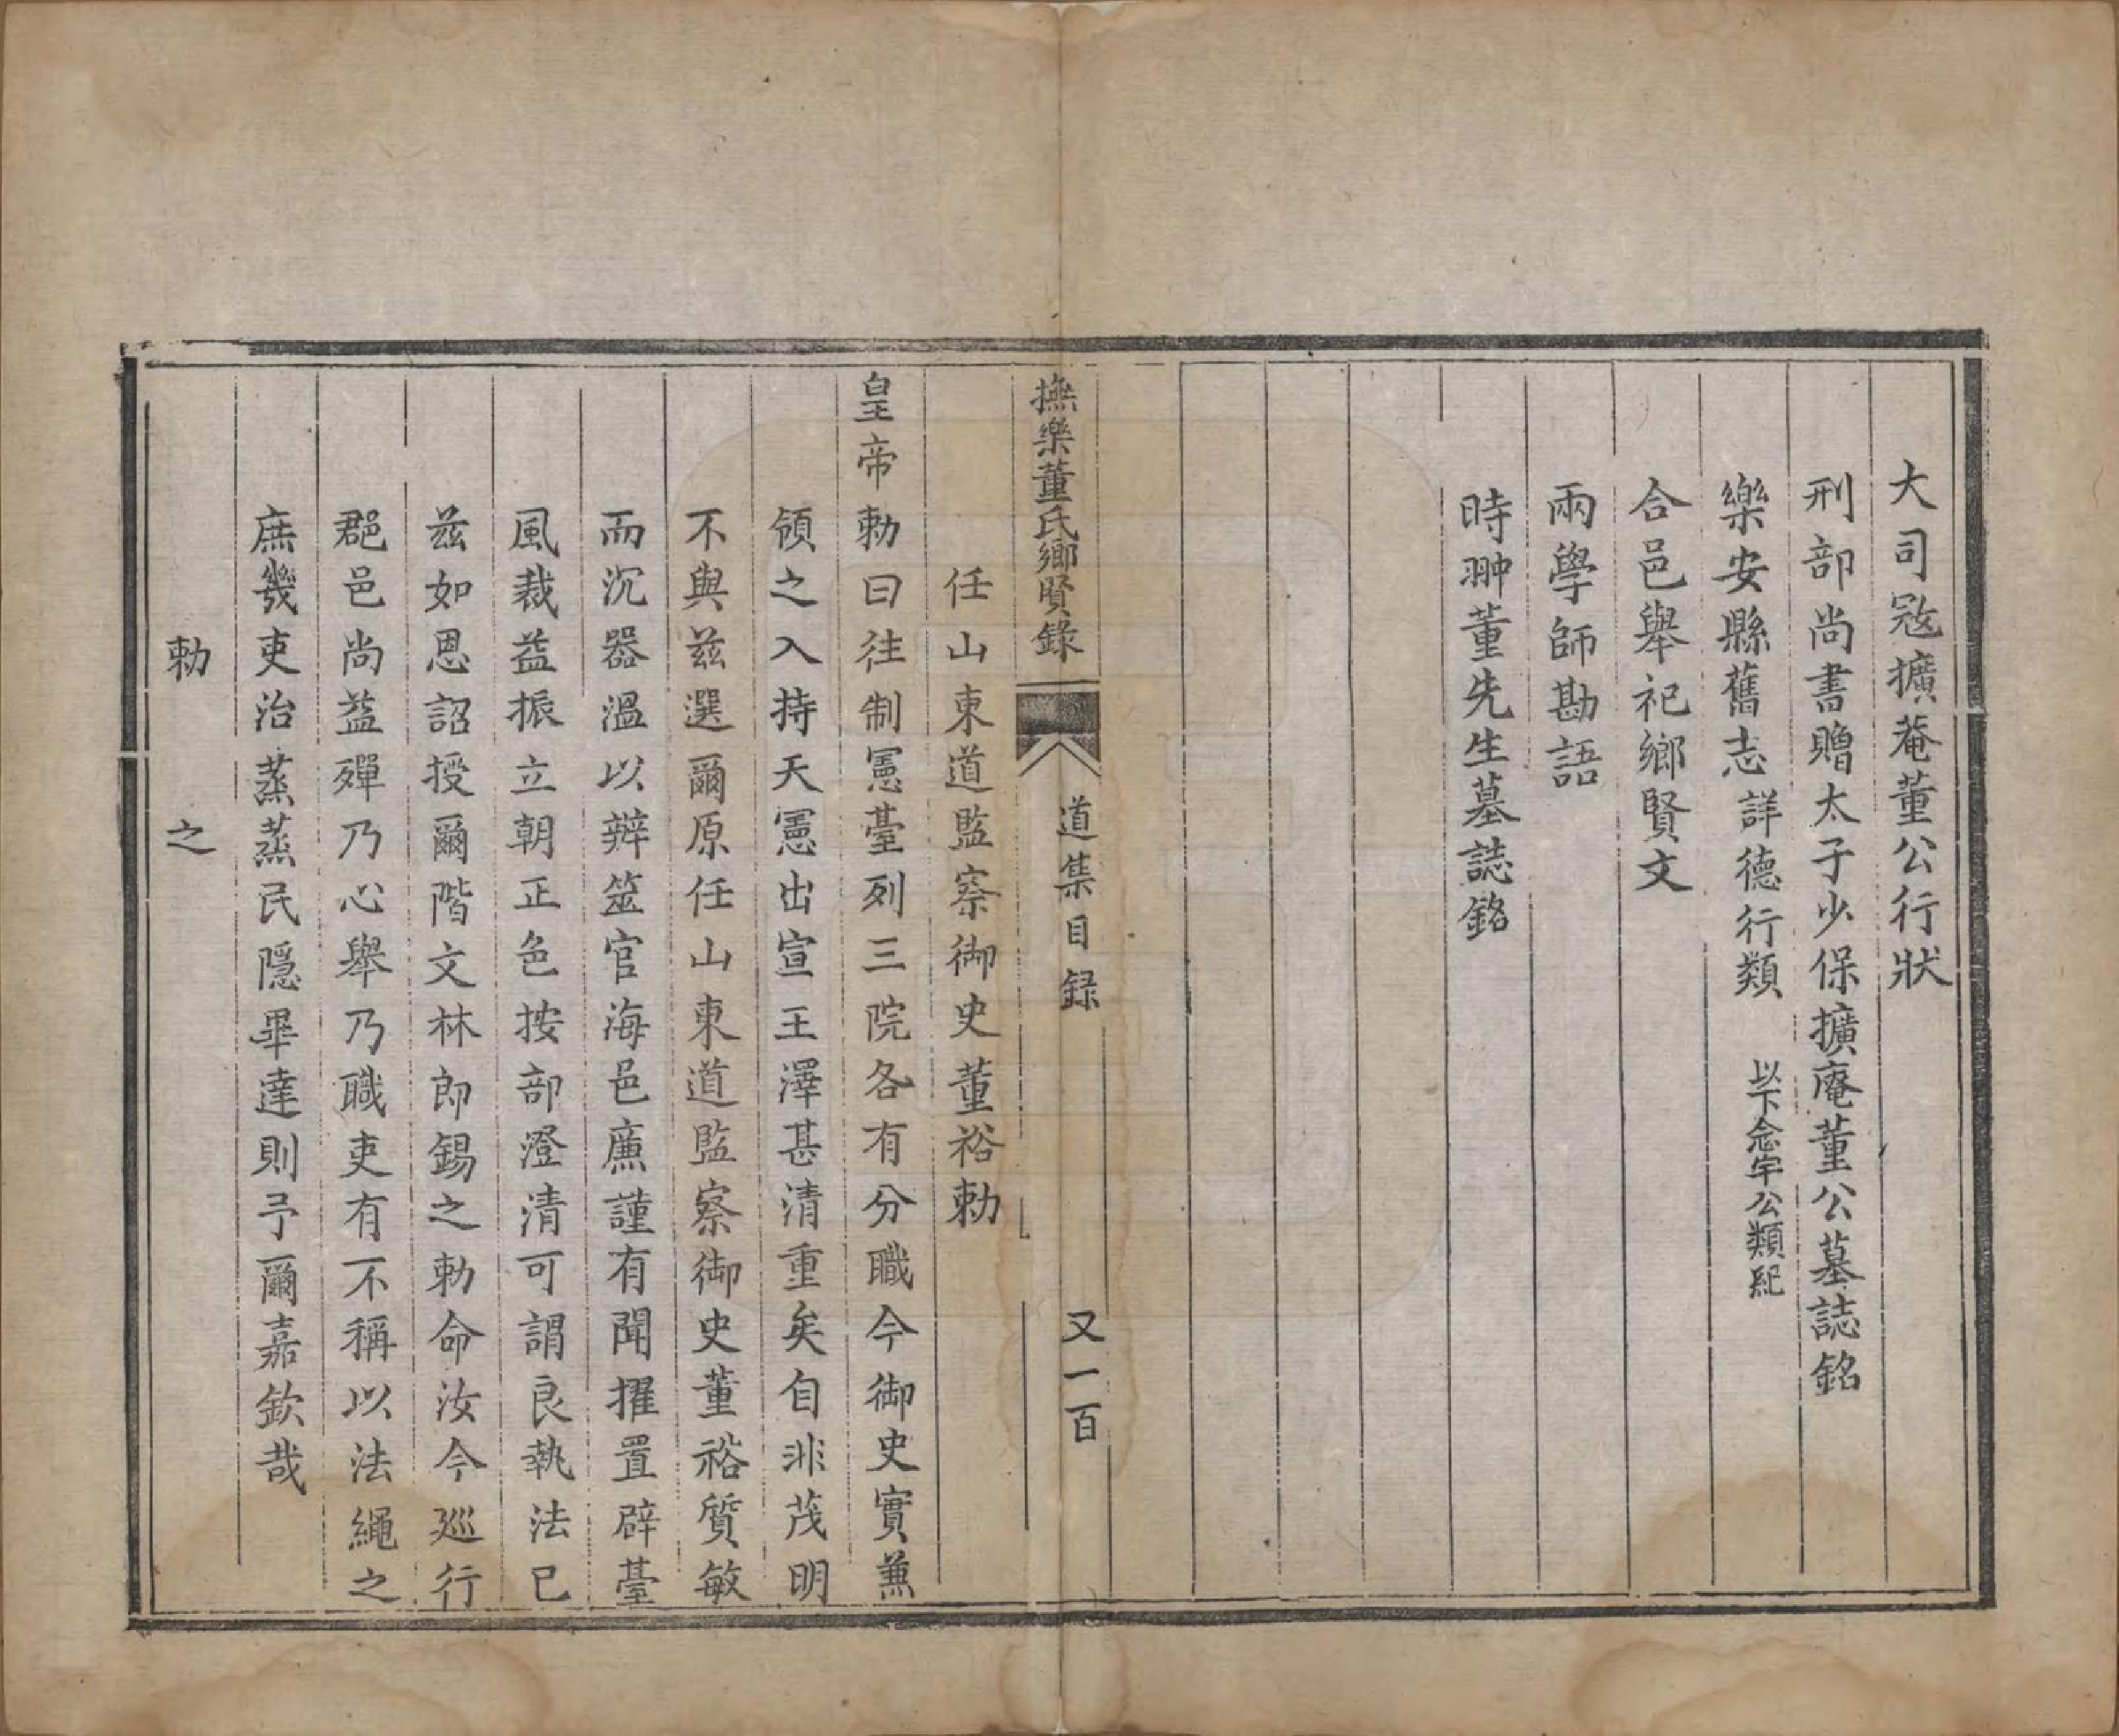 大司寇擴菴董公行狀
刑部尚書贈太子少保擴庵董公墓誌銘
樂安縣舊志詳德行類 以下念宇公類紀
合邑舉祀鄉賢文
兩學師勘語
時翀董先生墓誌銘
撫樂董氏鄉賢錄 道集目録 又一百
任山東道監察御史董裕勅
皇帝勅曰往制憲臺列三院各有分職今御史實兼
領之入持天憲出宣王澤甚清重矣自非茂明
不與茲選爾原任山東道監察御史董裕質敏
而沉器溫以辨筮官海邑廉謹有聞擢置辟臺
風裁益振立朝正色按部澄清可謂良執法已
茲如恩詔授爾階文林郎錫之勅命汝今巡行
郡邑尚益殫乃心舉乃職吏有不稱以法繩之
庶幾吏治蒸蒸民隱畢達則予爾嘉欽哉
勅 之